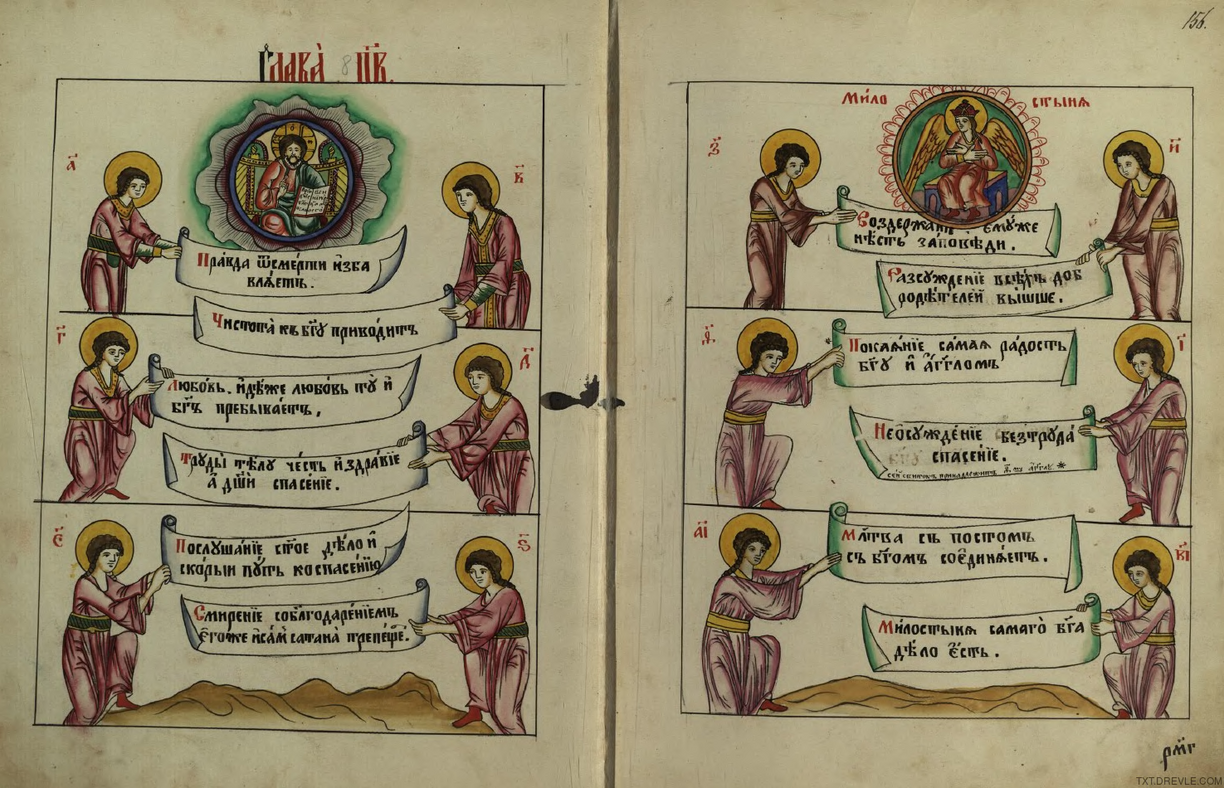 Глава̀ 8 п҃в.
а҃
в҃
Правда ѿсмерти изба
вляетъ.
Чистота къ бг҃у приводитъ
г҃
д҃
Любовь. идѣже любовь ту и
бг҃ъ пребываетъ,
Труды тѣлу честь и здравїе
а дш҃и спасенїе.
є҃
ѕ҃
Послушанїе ст҃ое дѣло и
скорыи путь ко спасенїю
Смиренїе соблагодаренїемъ
єгоже и сам сатана трепеще.
156.
Мило стыня
з҃
и҃
Создержанї ємуже
нѣсть заповѣди.
Разсужденїе всѣхъ доб
родѣтелей вышше.
ѳ҃
і҃
Покаянїе самая радость
бг҃у и аг҃гломъ
Неѡсужденїе безтруда
спасенїе.
сей свитокъ принадлежитъ
аі҃
ві҃
Мл҃тва съ постомъ
съ бг҃омъ соединяетъ.
Милостыня самаго бг҃а
дѣло єсть.
рмг҃
TXT.DREVLE.COM